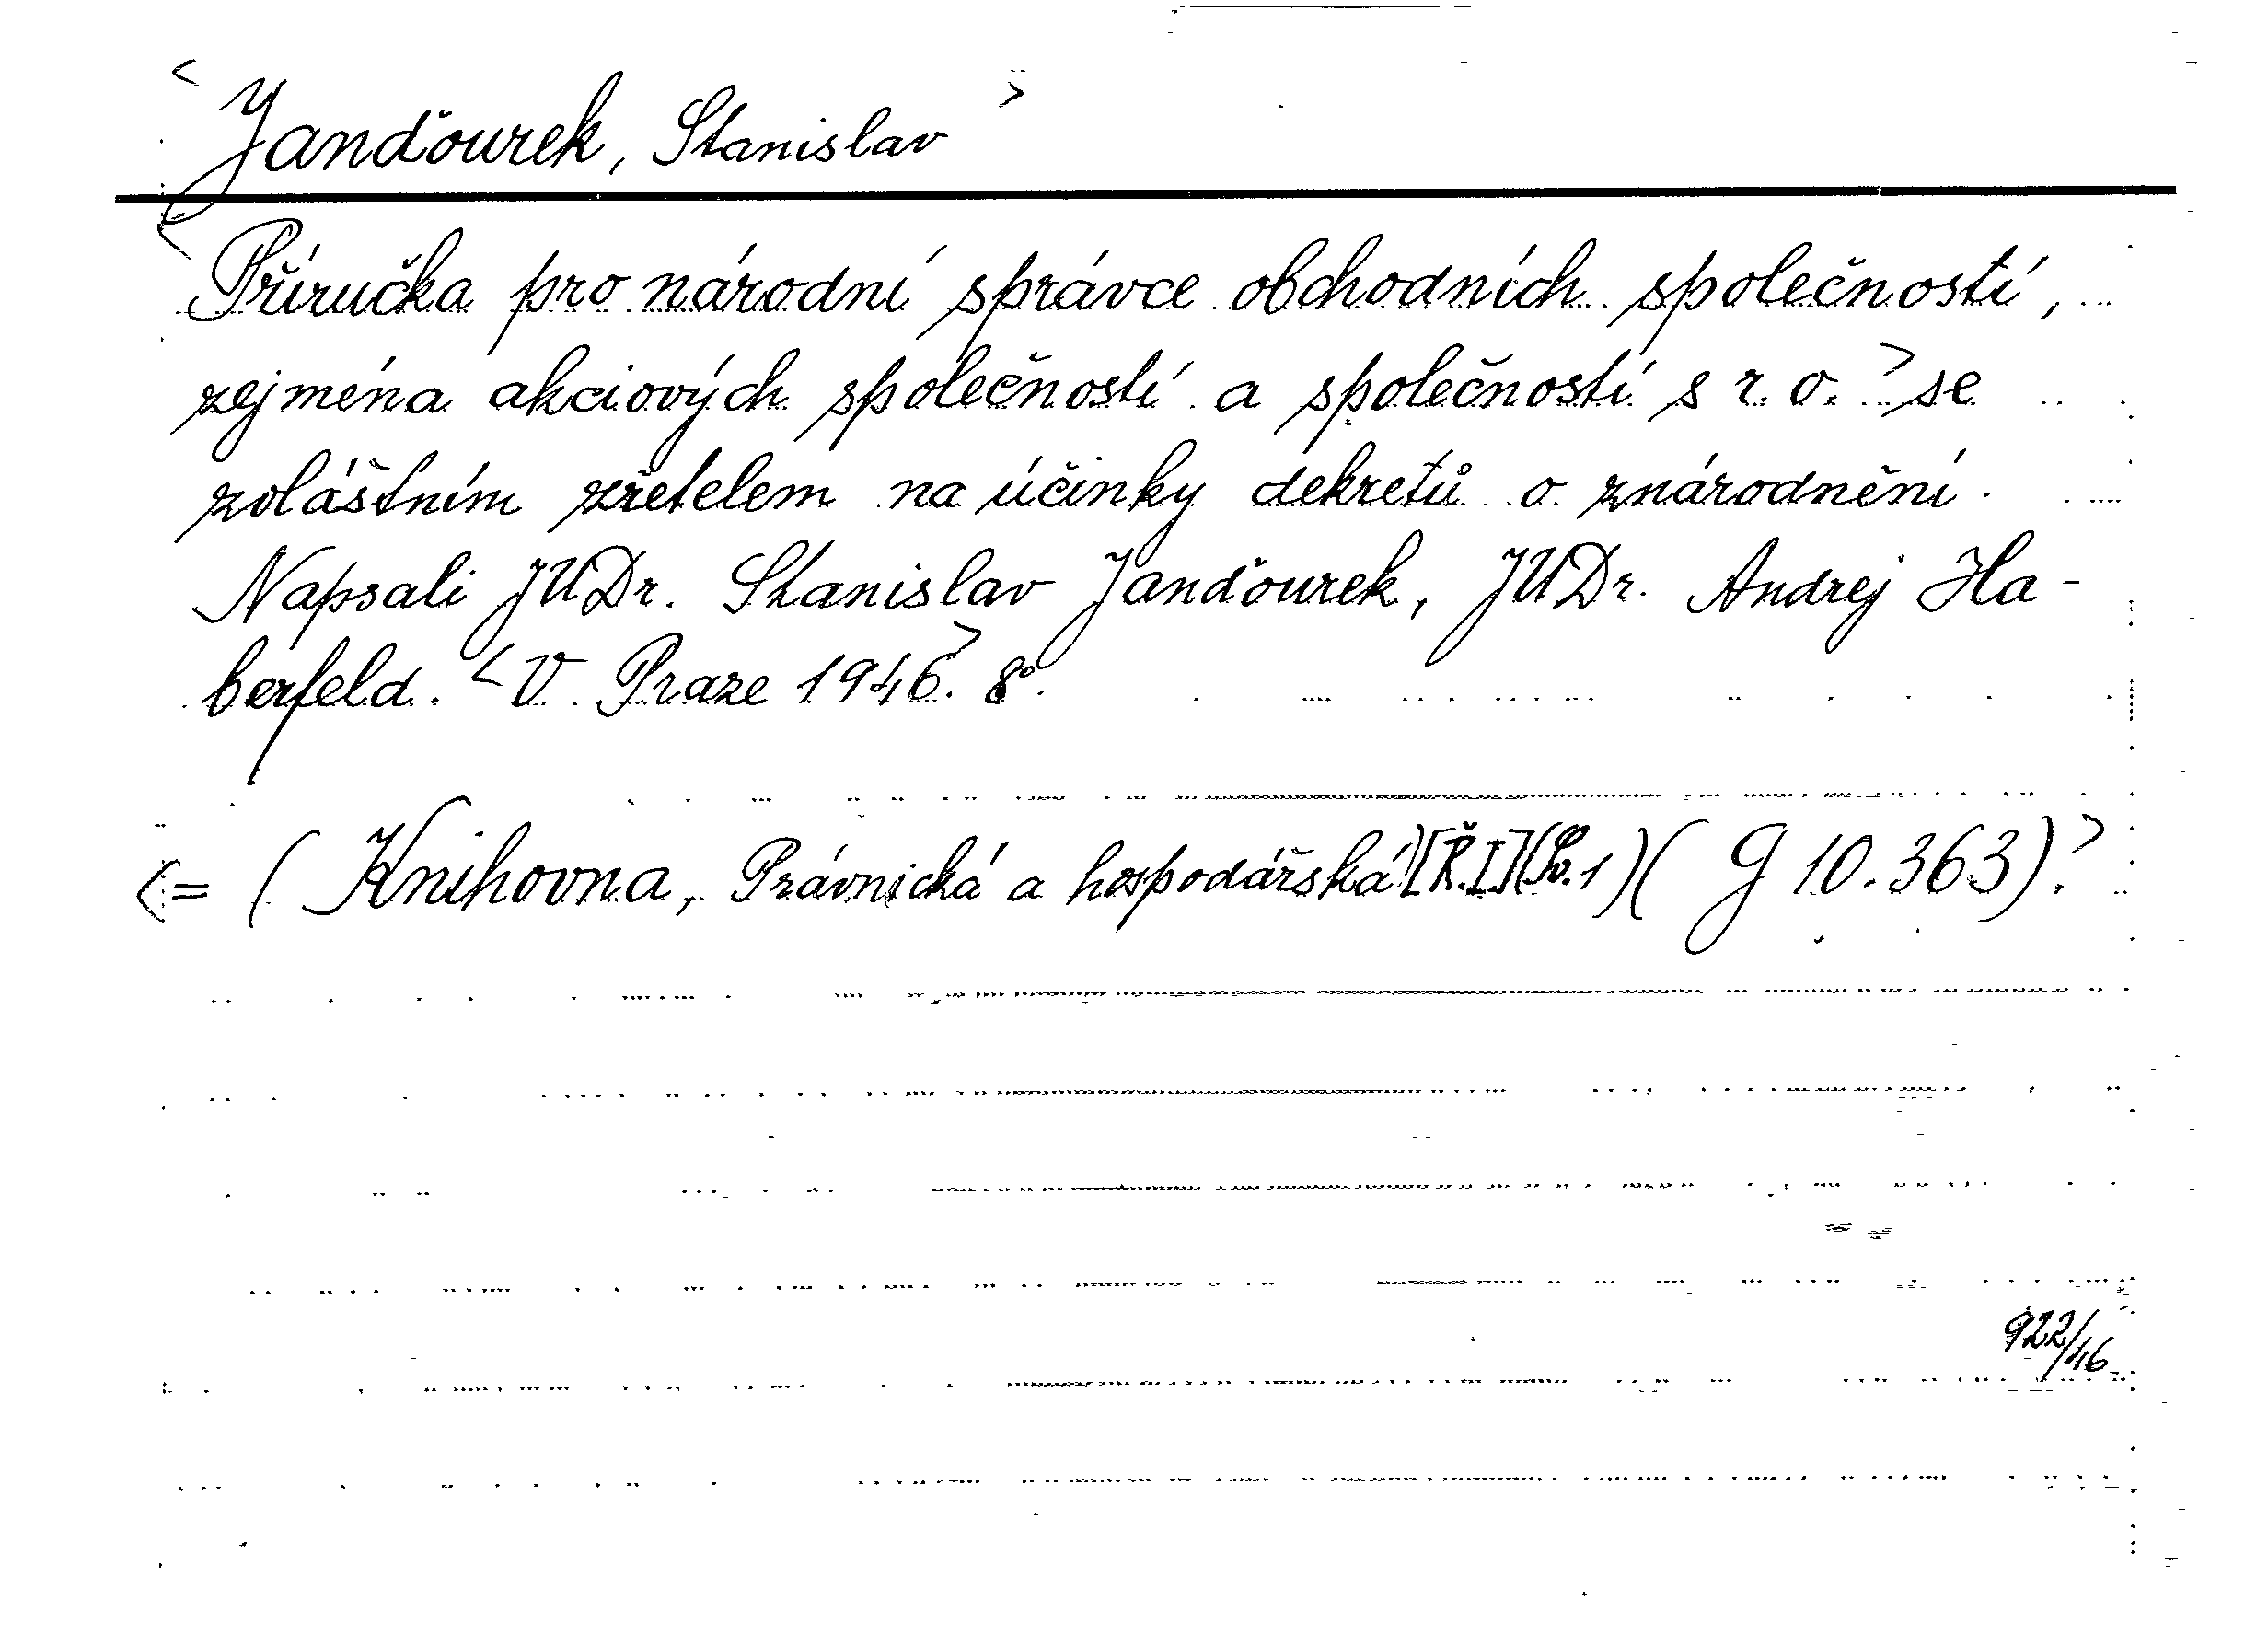 < Janďourek, Stanislav >
< Příručka pro národní správce obchodních společností,
zejména akciových společností a společností s r. o. > se
zvláštním zřetelem na účinky dekretů o znárodnění.
Napsali JUDr. Stanislav Janďourek, JUDr. Andrej Ha-
berfeld. < V Praze 1946. > 8°.
< = ( Knihovna, Právnická a hospodářská) [Ř.I] (Sv. 1) ( G 10.363). >
922/46